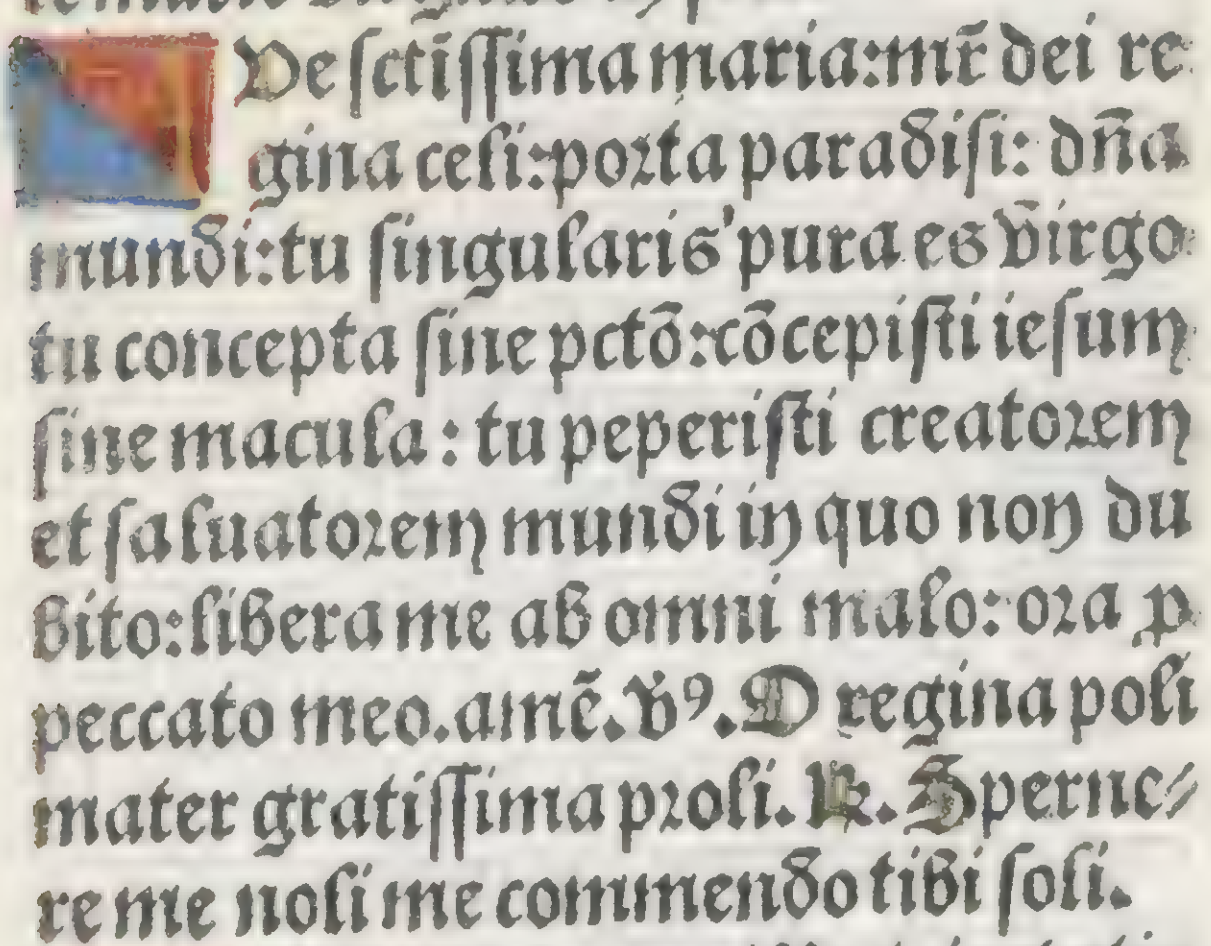 De ſctiſſima maria:mr̄ dei re
gina celi:porta paradiſi: dn̄a
mundi:tu ſingularis pura es virgo
tu concepta ſine pctō:cōcepiſti ieſum
ſine macula: tu peperiſti creatorem
et ſaluatorem mundi in quo non du
bito:libera me ab omni malo: ora ꝓ
peccato meo.amē. v̄ꝰ. O regina poli
mater gratiſſima proli. ℟. Sperne/
re me noli me commendo tibi ſoli.